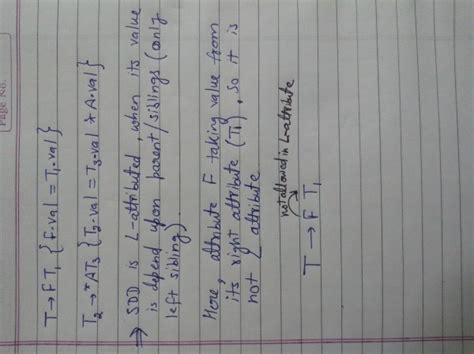 Page No.
T → FT₁ {F.val = T₁.val}
T₂ → *AT₃ {T₂.val = T₃.val * A.val}
⇒ SDD is L-attributed, when its value
is depend upon parent/siblings (only
left sibling).
Here, attribute F taking value from
its right attribute (T₁). So it is
not L attribute
not allowed in L-attribute
T → F T₁